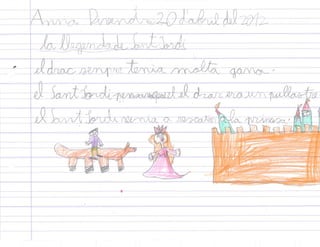 Anna Durand 20 d'abril del 2012
la llegenda de Sant Jordi
el drac senpre tenia molta gana.
el Sant Jordi pensava que el drac era un
el Sant Jordi venia a rescatar la princesa.